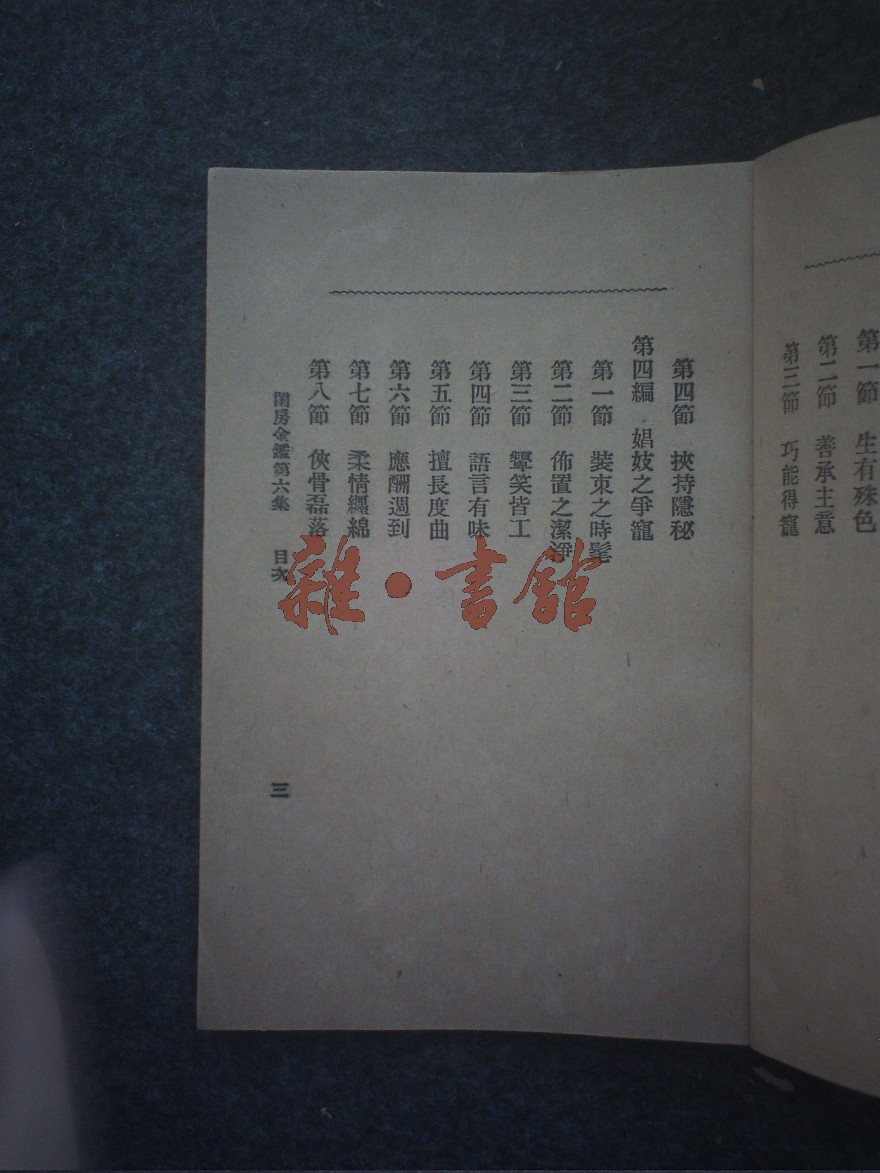 第一節　生有殊色
第二節　善承主意
第三節　巧能得寵
第四節　挾持隱秘
第四編　娼妓之爭寵
第一節　裝束之時髦
第二節　佈置之潔淨
第三節　顰笑皆工
第四節　語言有味
第五節　擅長度曲
第六節　應酬週到
第七節　柔情纏綿
第八節　俠骨磊落
閨房金鑑第六集　目次
三
雜·書館